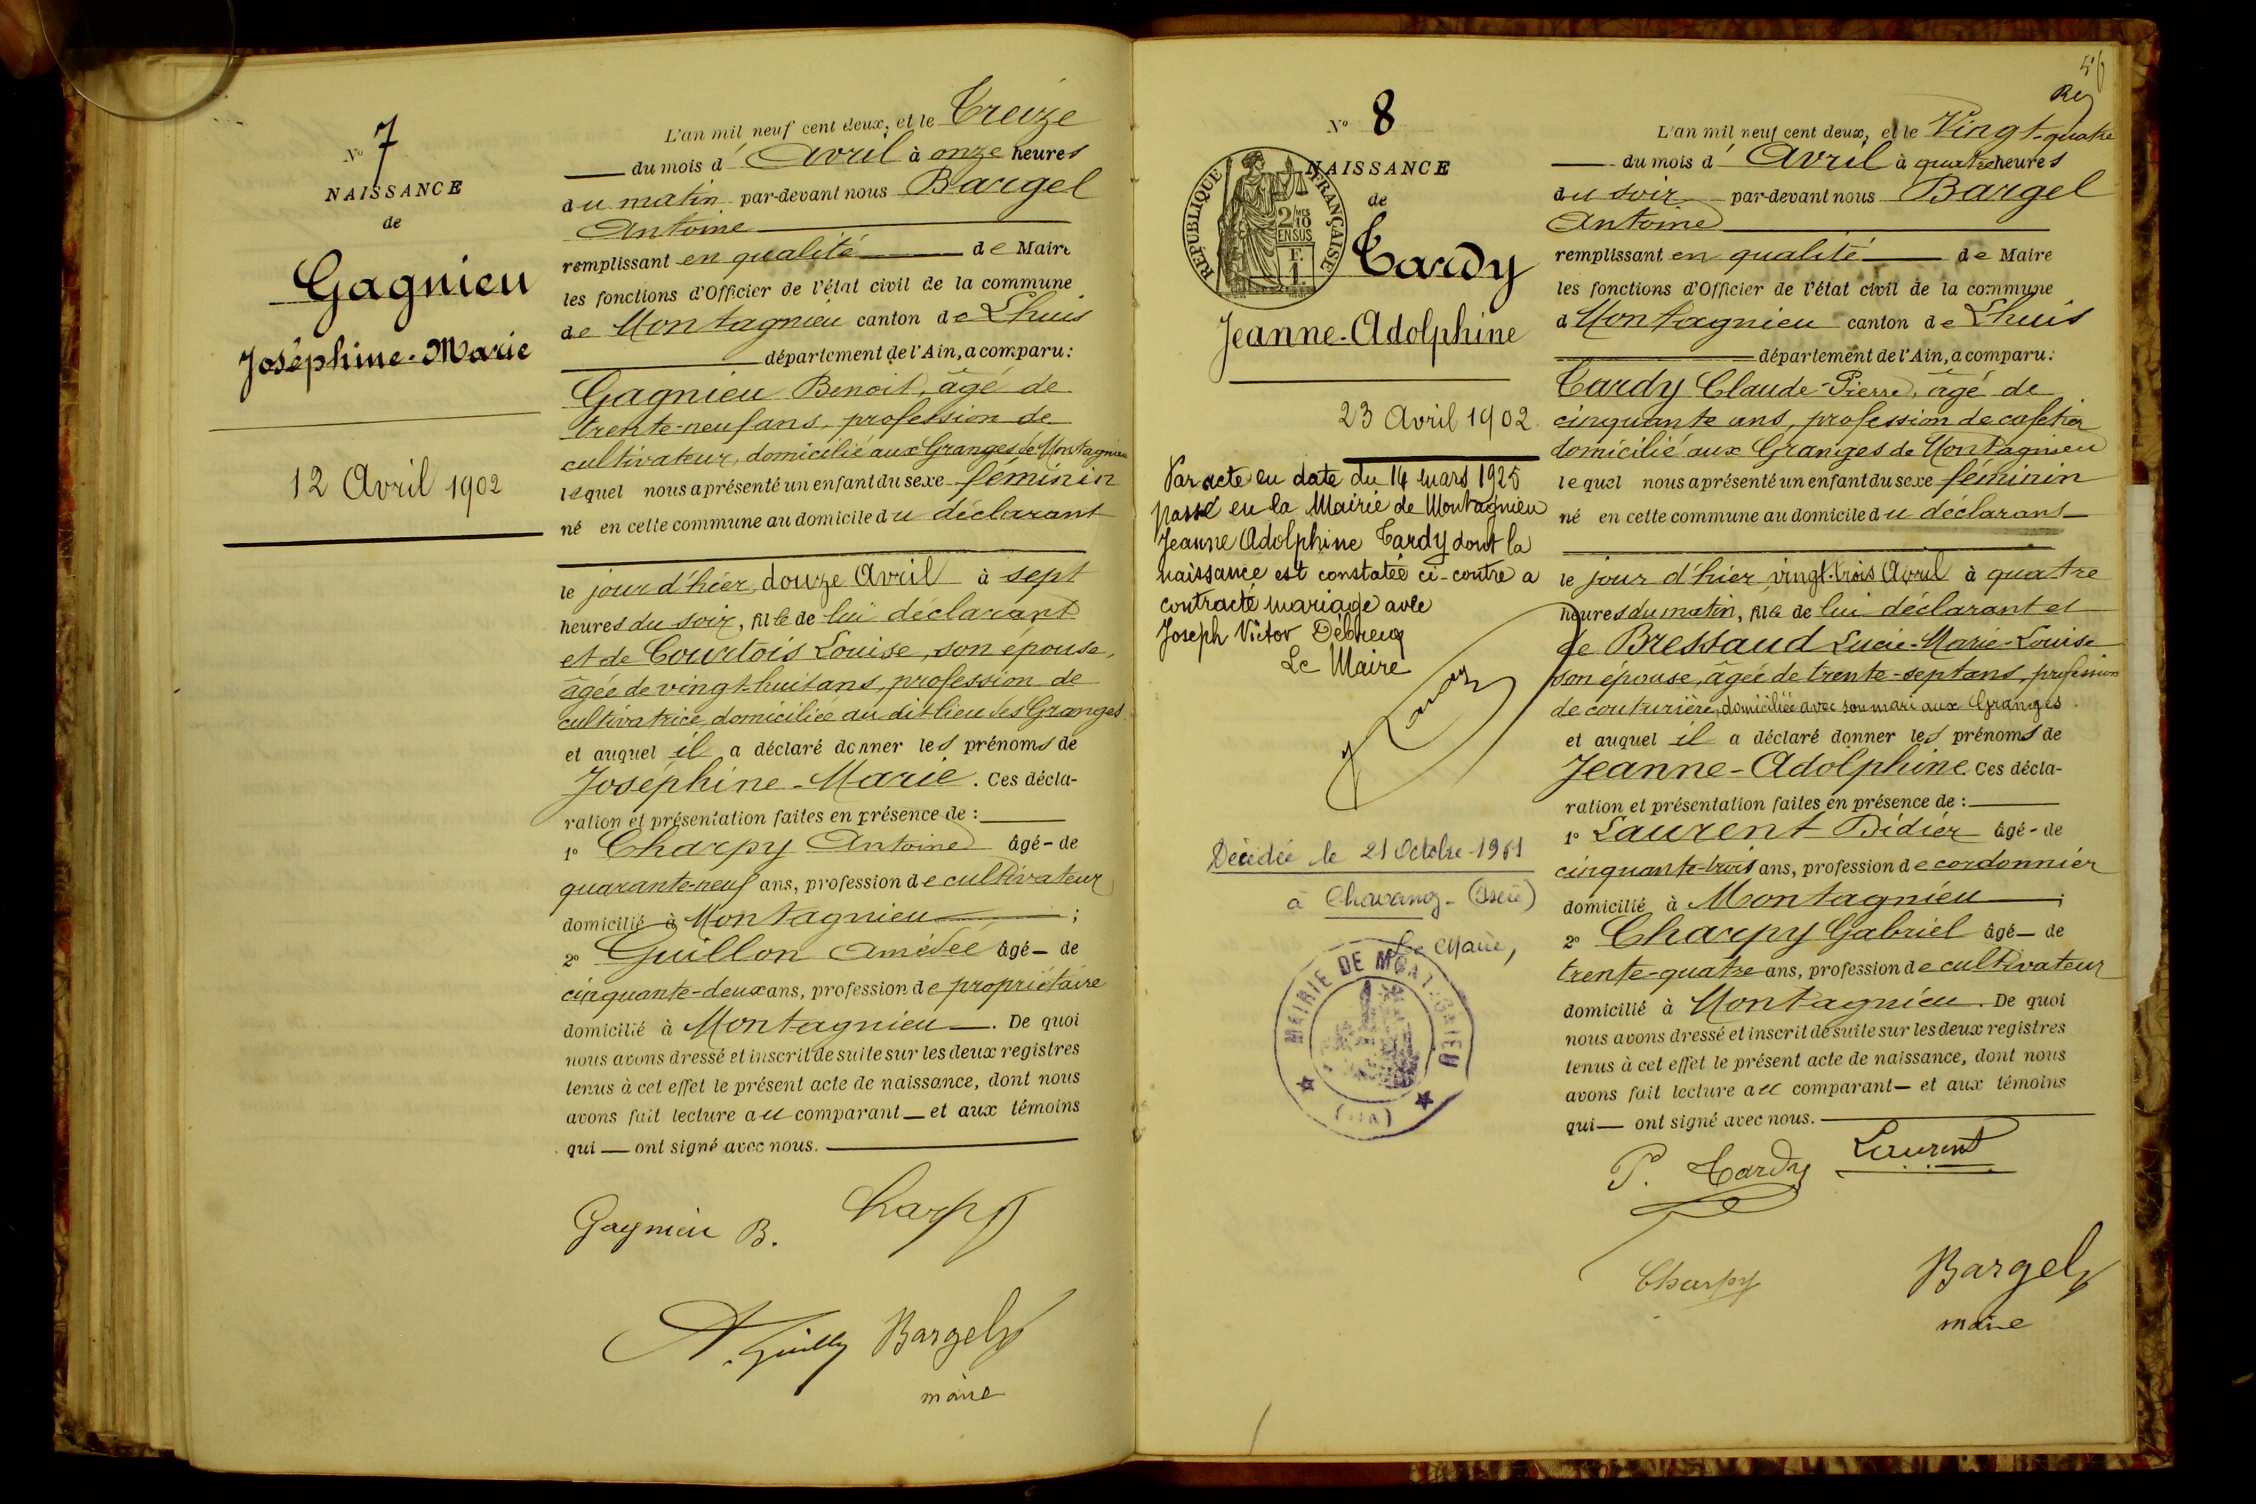 No 7
NAISSANCE
de
Gagnieu
Joséphine-Marie
12 Avril 1902
L'an mil neuf cent deux, et le Treize
du mois d' Avril à onze heures
du matin par-devant nous Bargel
Antoine
remplissant en qualité de Maire
les fonctions d'Officier de l'état civil de la commune
de Montagnieu canton de Lhuis
département de l'Ain, a comparu:
Gagnieu Benoit, âgé de
trente-neuf ans, profession de
cultivateur, domicilié aux Granges de Montagnieu
lequel nous a présenté un enfant du sexe féminin
né en cette commune au domicile du déclarant
le jour d'hier, douze Avril à sept
heures du soir, fille de lui déclarant
et de Courtois Louise, son épouse,
âgée de vingt-huit ans, profession de
cultivatrice, domiciliée au dit lieu des Granges
et auquel il a déclaré donner les prénoms de
Joséphine-Marie. Ces décla-
ration et présentation faites en présence de :
1º Charpy Antoine âgé - de
quarante-neuf ans, profession de cultivateur
domicilié à Montagnieu ;
2º Guillon Amédée âgé - de
cinquante-deux ans, profession de propriétaire
domicilié à Montagnieu. De quoi
nous avons dressé et inscrit de suite sur les deux registres
tenus à cet effet le présent acte de naissance, dont nous
avons fait lecture au comparant et aux témoins
qui ont signé avec nous.
Gagnieu B. Charpy
Bargel
maire
No 8
NAISSANCE
de
REPUBLIQUE FRANÇAISE
2/10 EN SUS
F. 1
Tardy
Jeanne-Adolphine
23 Avril 1902.
Par acte en date du 14 mars 1925
passé en la Mairie de Montagnieu
Jeanne Adolphine Tardy dont la
naissance est constatée ci-contre a
contracté mariage avec
Joseph Victor Débrecq
Le Maire
Décédée le 21 Octobre 1961
à Chavanoz - (Isère)
Le Maire,
MAIRIE DE MONTAGNIEU
(AIN)
L'an mil neuf cent deux, et le Vingt-quatre
du mois d' Avril à quatre heures
du soir par-devant nous Bargel
Antoine
remplissant en qualité de Maire
les fonctions d'Officier de l'état civil de la commune
d Montagnieu canton de Lhuis
département de l'Ain, a comparu:
Tardy Claude-Pierre, âgé de
cinquante ans, profession de cafetier
domicilié aux Granges de Montagnieu
lequel nous a présenté un enfant du sexe féminin
né en cette commune au domicile du déclarant
le jour d'hier vingt-trois Avril à quatre
heures du matin, fille de lui déclarant et
de Bressaud Lucie-Marie-Louise
son épouse, âgée de trente-sept ans, profession
de couturière, domiciliée avec son mari aux Granges
et auquel il a déclaré donner les prénoms de
Jeanne-Adolphine. Ces décla-
ration et présentation faites en présence de :
1º Laurent Didier âgé - de
cinquante-trois ans, profession de cordonnier
domicilié à Montagnieu ;
2º Charpy Gabriel âgé - de
trente-quatre ans, profession de cultivateur
domicilié à Montagnieu. De quoi
nous avons dressé et inscrit de suite sur les deux registres
tenus à cet effet le présent acte de naissance, dont nous
avons fait lecture au comparant - et aux témoins
qui - ont signé avec nous.
P. Tardy Laurent
Charpy Bargel
maire